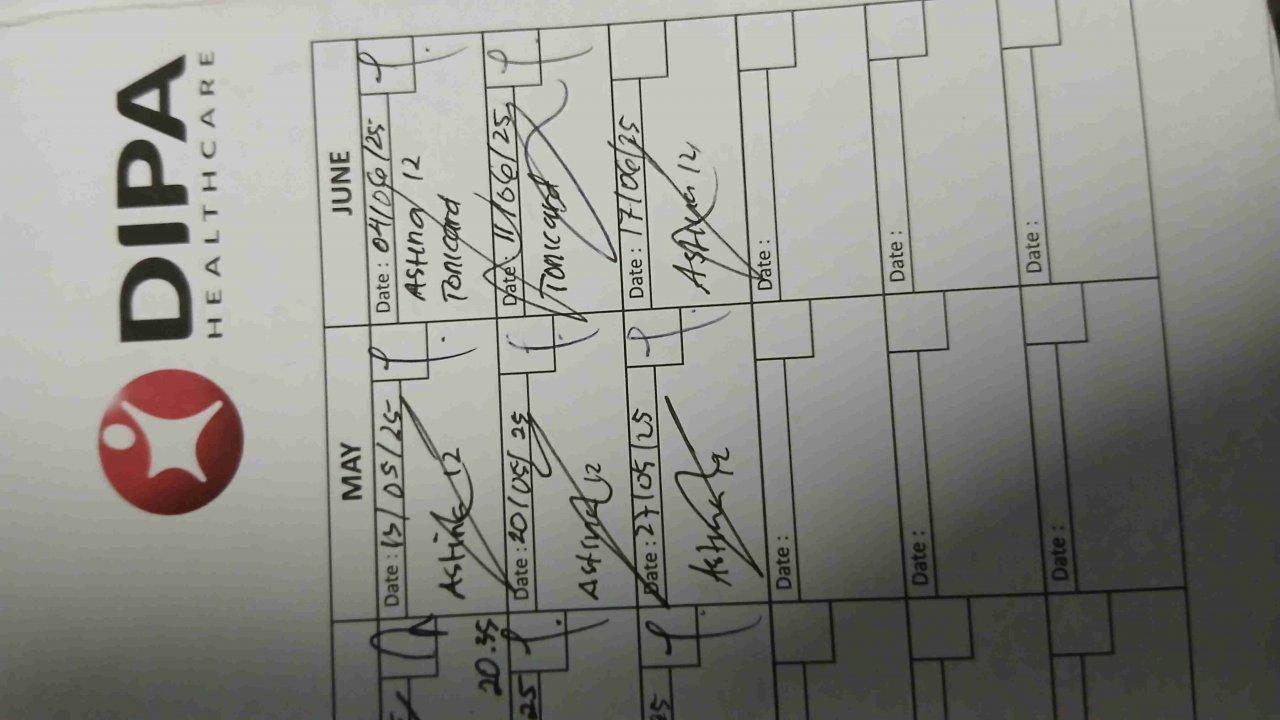 DIPA
HEALTHCARE
MAY
JUNE
Date : 13/05/25
Astina 12
Date : 20/05/25
Astina 12
Date : 27/05/25
Astina 12
Date :
Date :
Date :
Date : 04/06/25
Astina 12
Tonicard
Date : 11/06/25
Tonicard
Date : 17/06/25
Astina 12
Date :
Date :
Date :
20.35
25
25